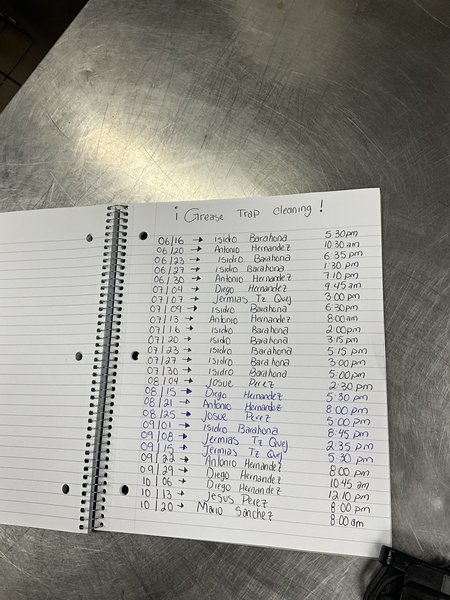 ¡ Grease Trap cleaning !
06/16 → Isidro Barahona 5:30pm
06/20 → Antonio Hernandez 10:30 am
06/23 → Isidro Barahona 6:35 pm
06/27 → Isidro Barahona 1:30 pm
06/30 → Antonio Hernandez 7:10 pm
07/04 → Diego Hernandez 9:45 am
07/07 → Jermias Tz Quej 3:00 pm
07/09 → Isidro Barahona 6:30pm
07/13 → Antonio Hernandez 8:00am
07/16 → Isidro Barahona 2:00pm
07/20 → Isidro Barahona 3:15 pm
07/23 → Isidro Barahona 5:15 pm
07/27 → Isidro Barahona 3:00 pm
07/30 → Isidro Barahona 5:00 pm
08/04 → Josue Perez 2:30 pm
08/15 → Diego Hernandez 5:30 pm
08/21 → Antonio Hernandez 8:00 pm
08/25 → Josue Perez 5:00 pm
09/01 → Isidro Barahona 8:45 pm
09/08 → Jermias Tz Quej 2:35 pm
09/15 → Jermias Tz Quej 5:30 pm
09/22 → Antonio Hernandez 8:00 pm
09/29 → Diego Hernandez 10:45 am
10/06 → Diego Hernandez 12:10 pm
10/13 → Jesus Perez 8:00 pm
10/20 → Mario Sanchez 8:00 am